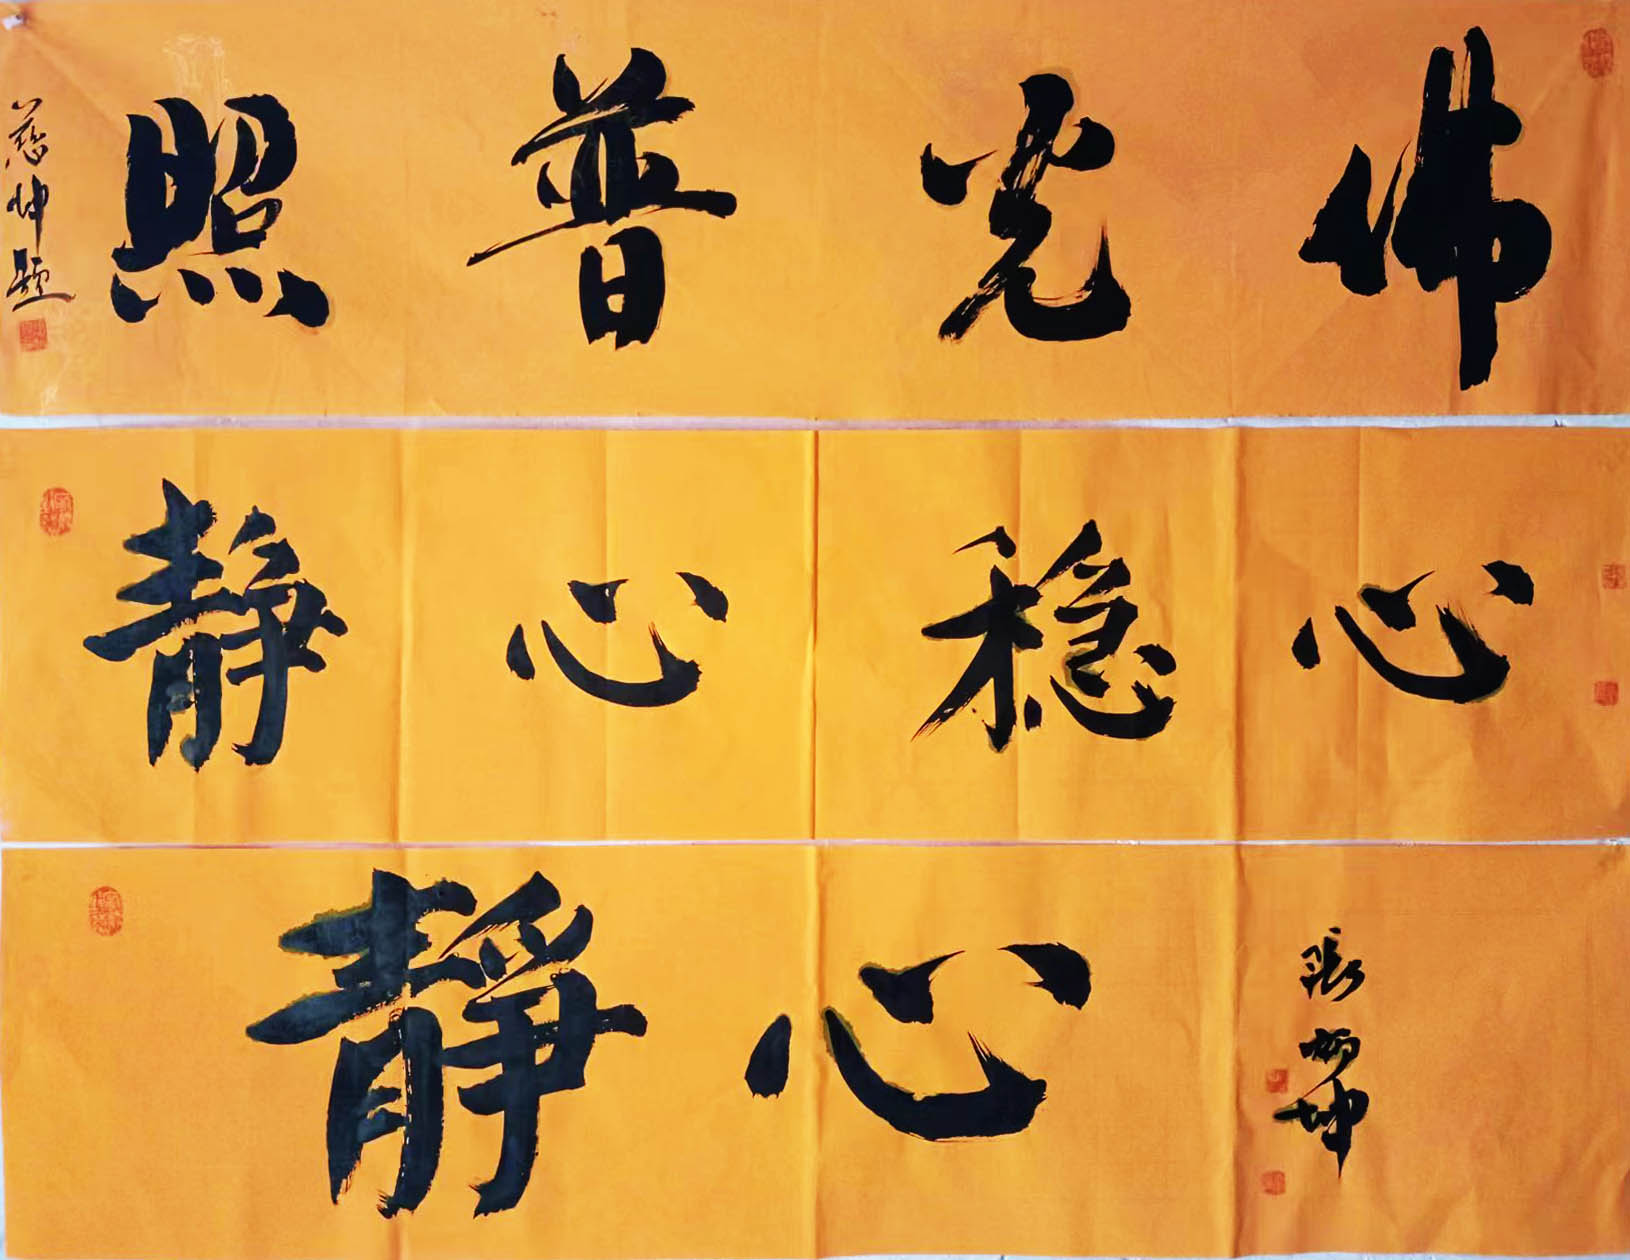 佛光普照
慈坤题
静心稳心
靜心
张炳坤